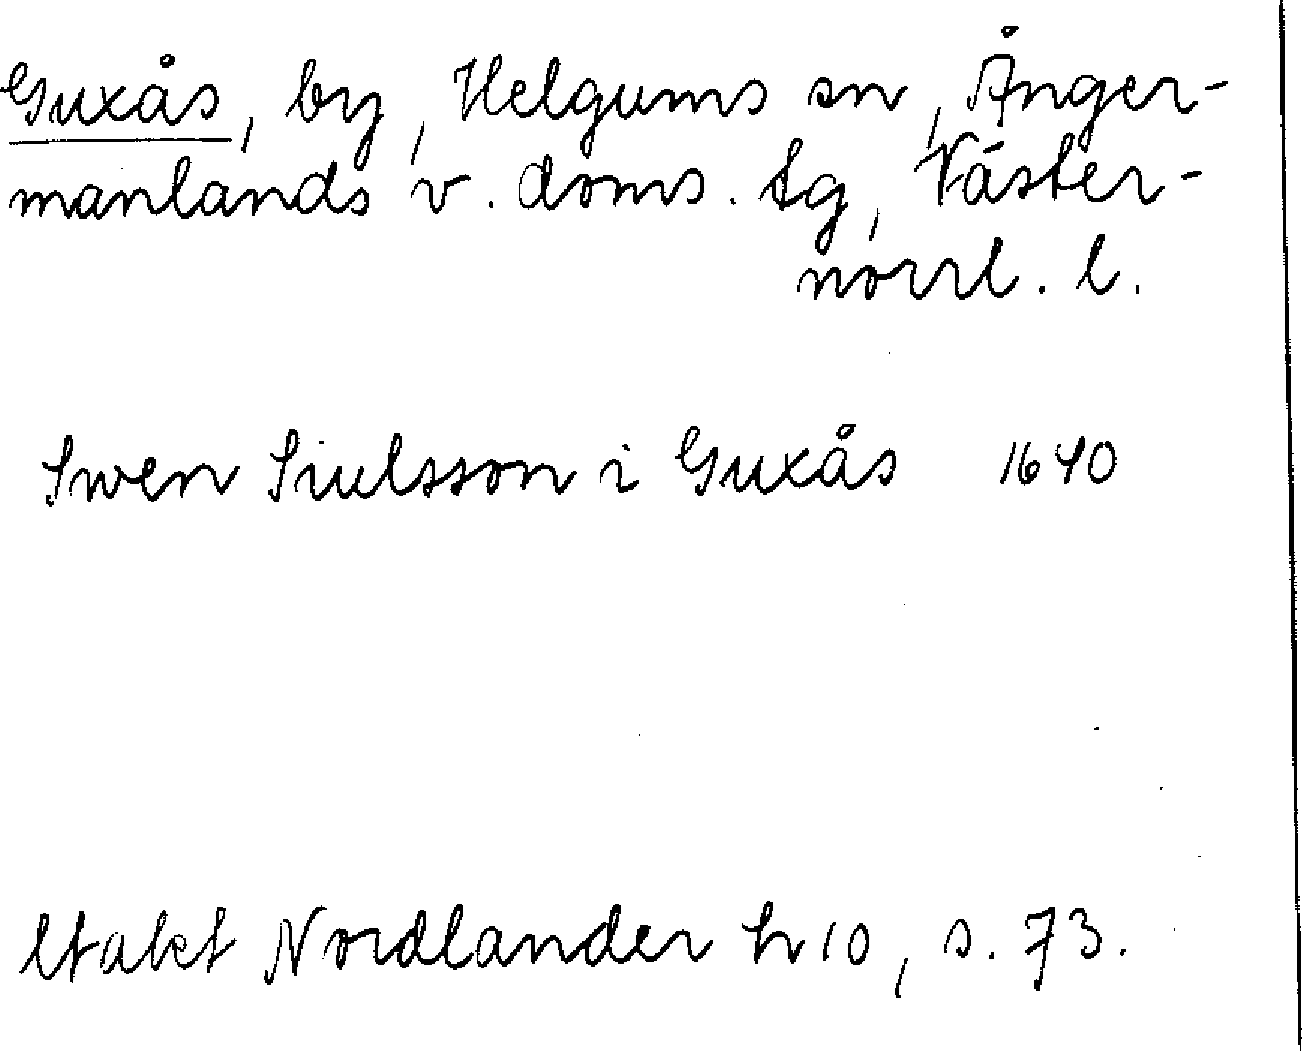 Guxås, by, Helgums sn, Ånger-
manlands v. doms. tg, Väster-
norrl. l.
Swen Siulsson i Guxås 1640
Utakt Nordlander h 10, s. 73.